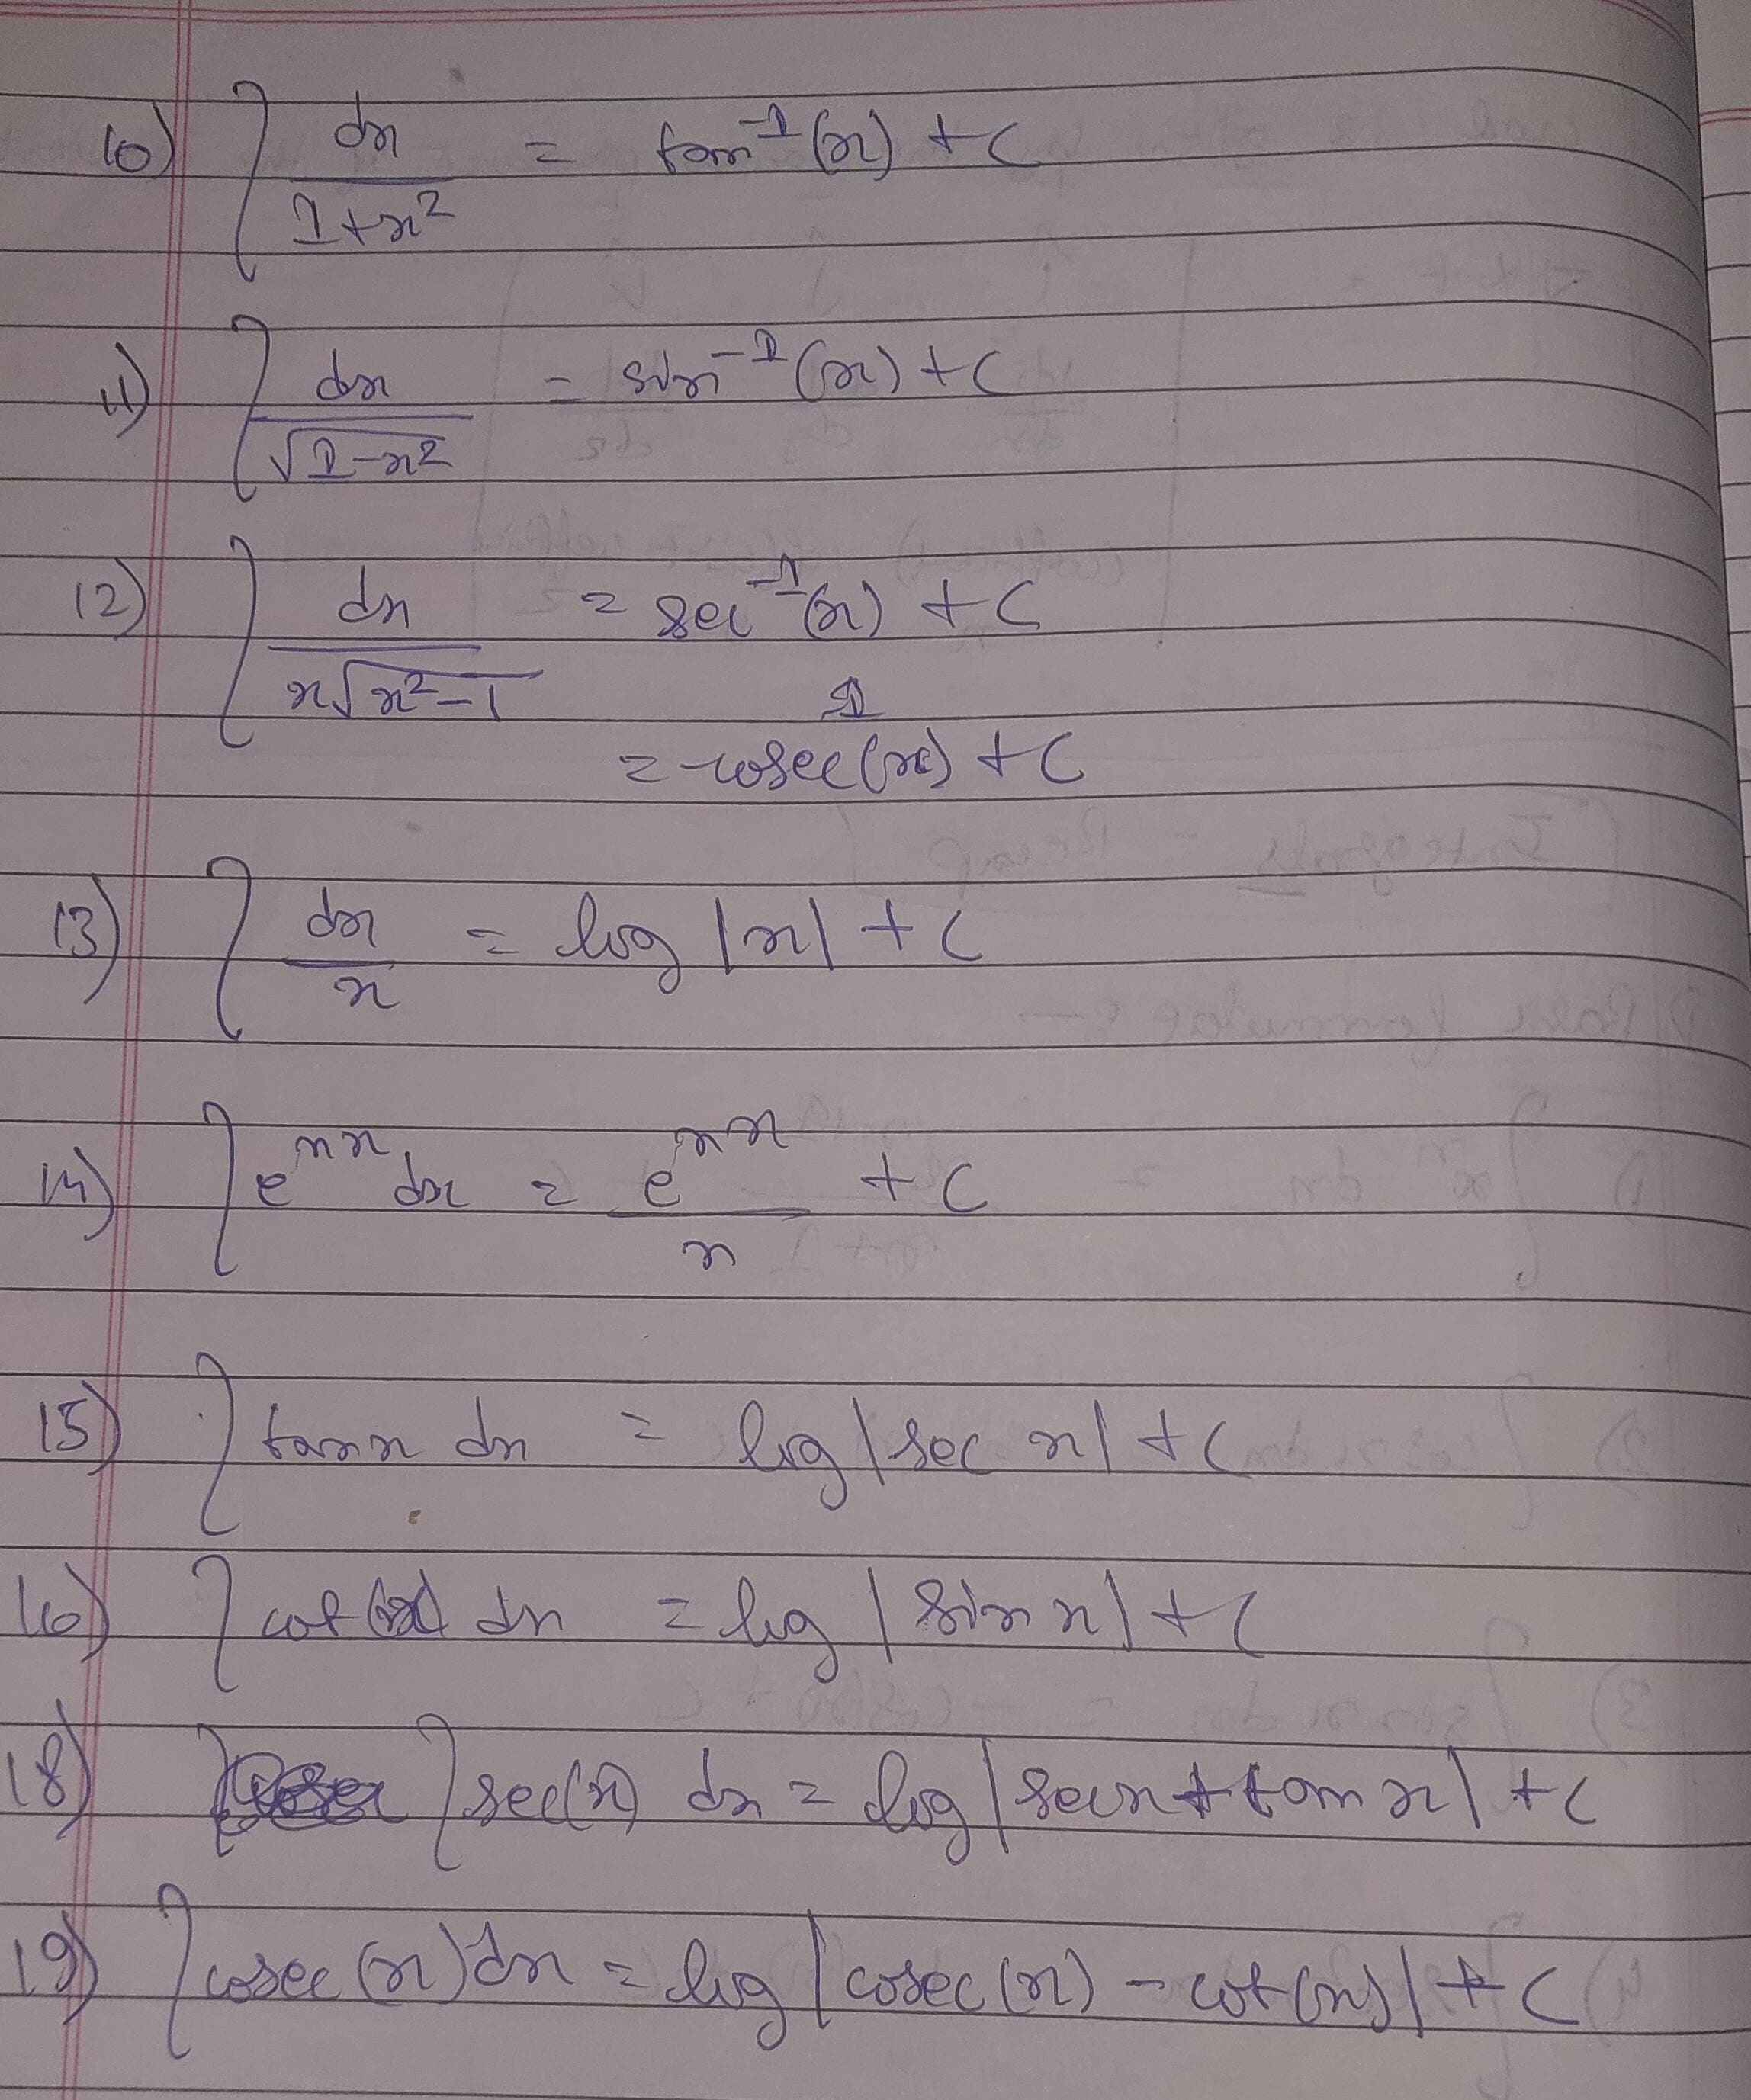 10) ∫ dx/(1+x²) = tan⁻¹(x) + C
11) ∫ dx/√(1-x²) = sin⁻¹(x) + C
12) ∫ dx/(x√(x²-1)) = sec⁻¹(x) + C
= -cosec⁻¹(x) + C
13) ∫ dx/x = log |x| + C
14) ∫ e^(nx) dx = e^(nx)/n + C
15) ∫ tan x dx = log |sec x| + C
16) ∫ cot (x) dx = log | sin x | + C
18) ∫ sec(x) dx = log | sec x + tan x | + C
19) ∫ cosec (x) dx = log | cosec (x) - cot (x) | + C